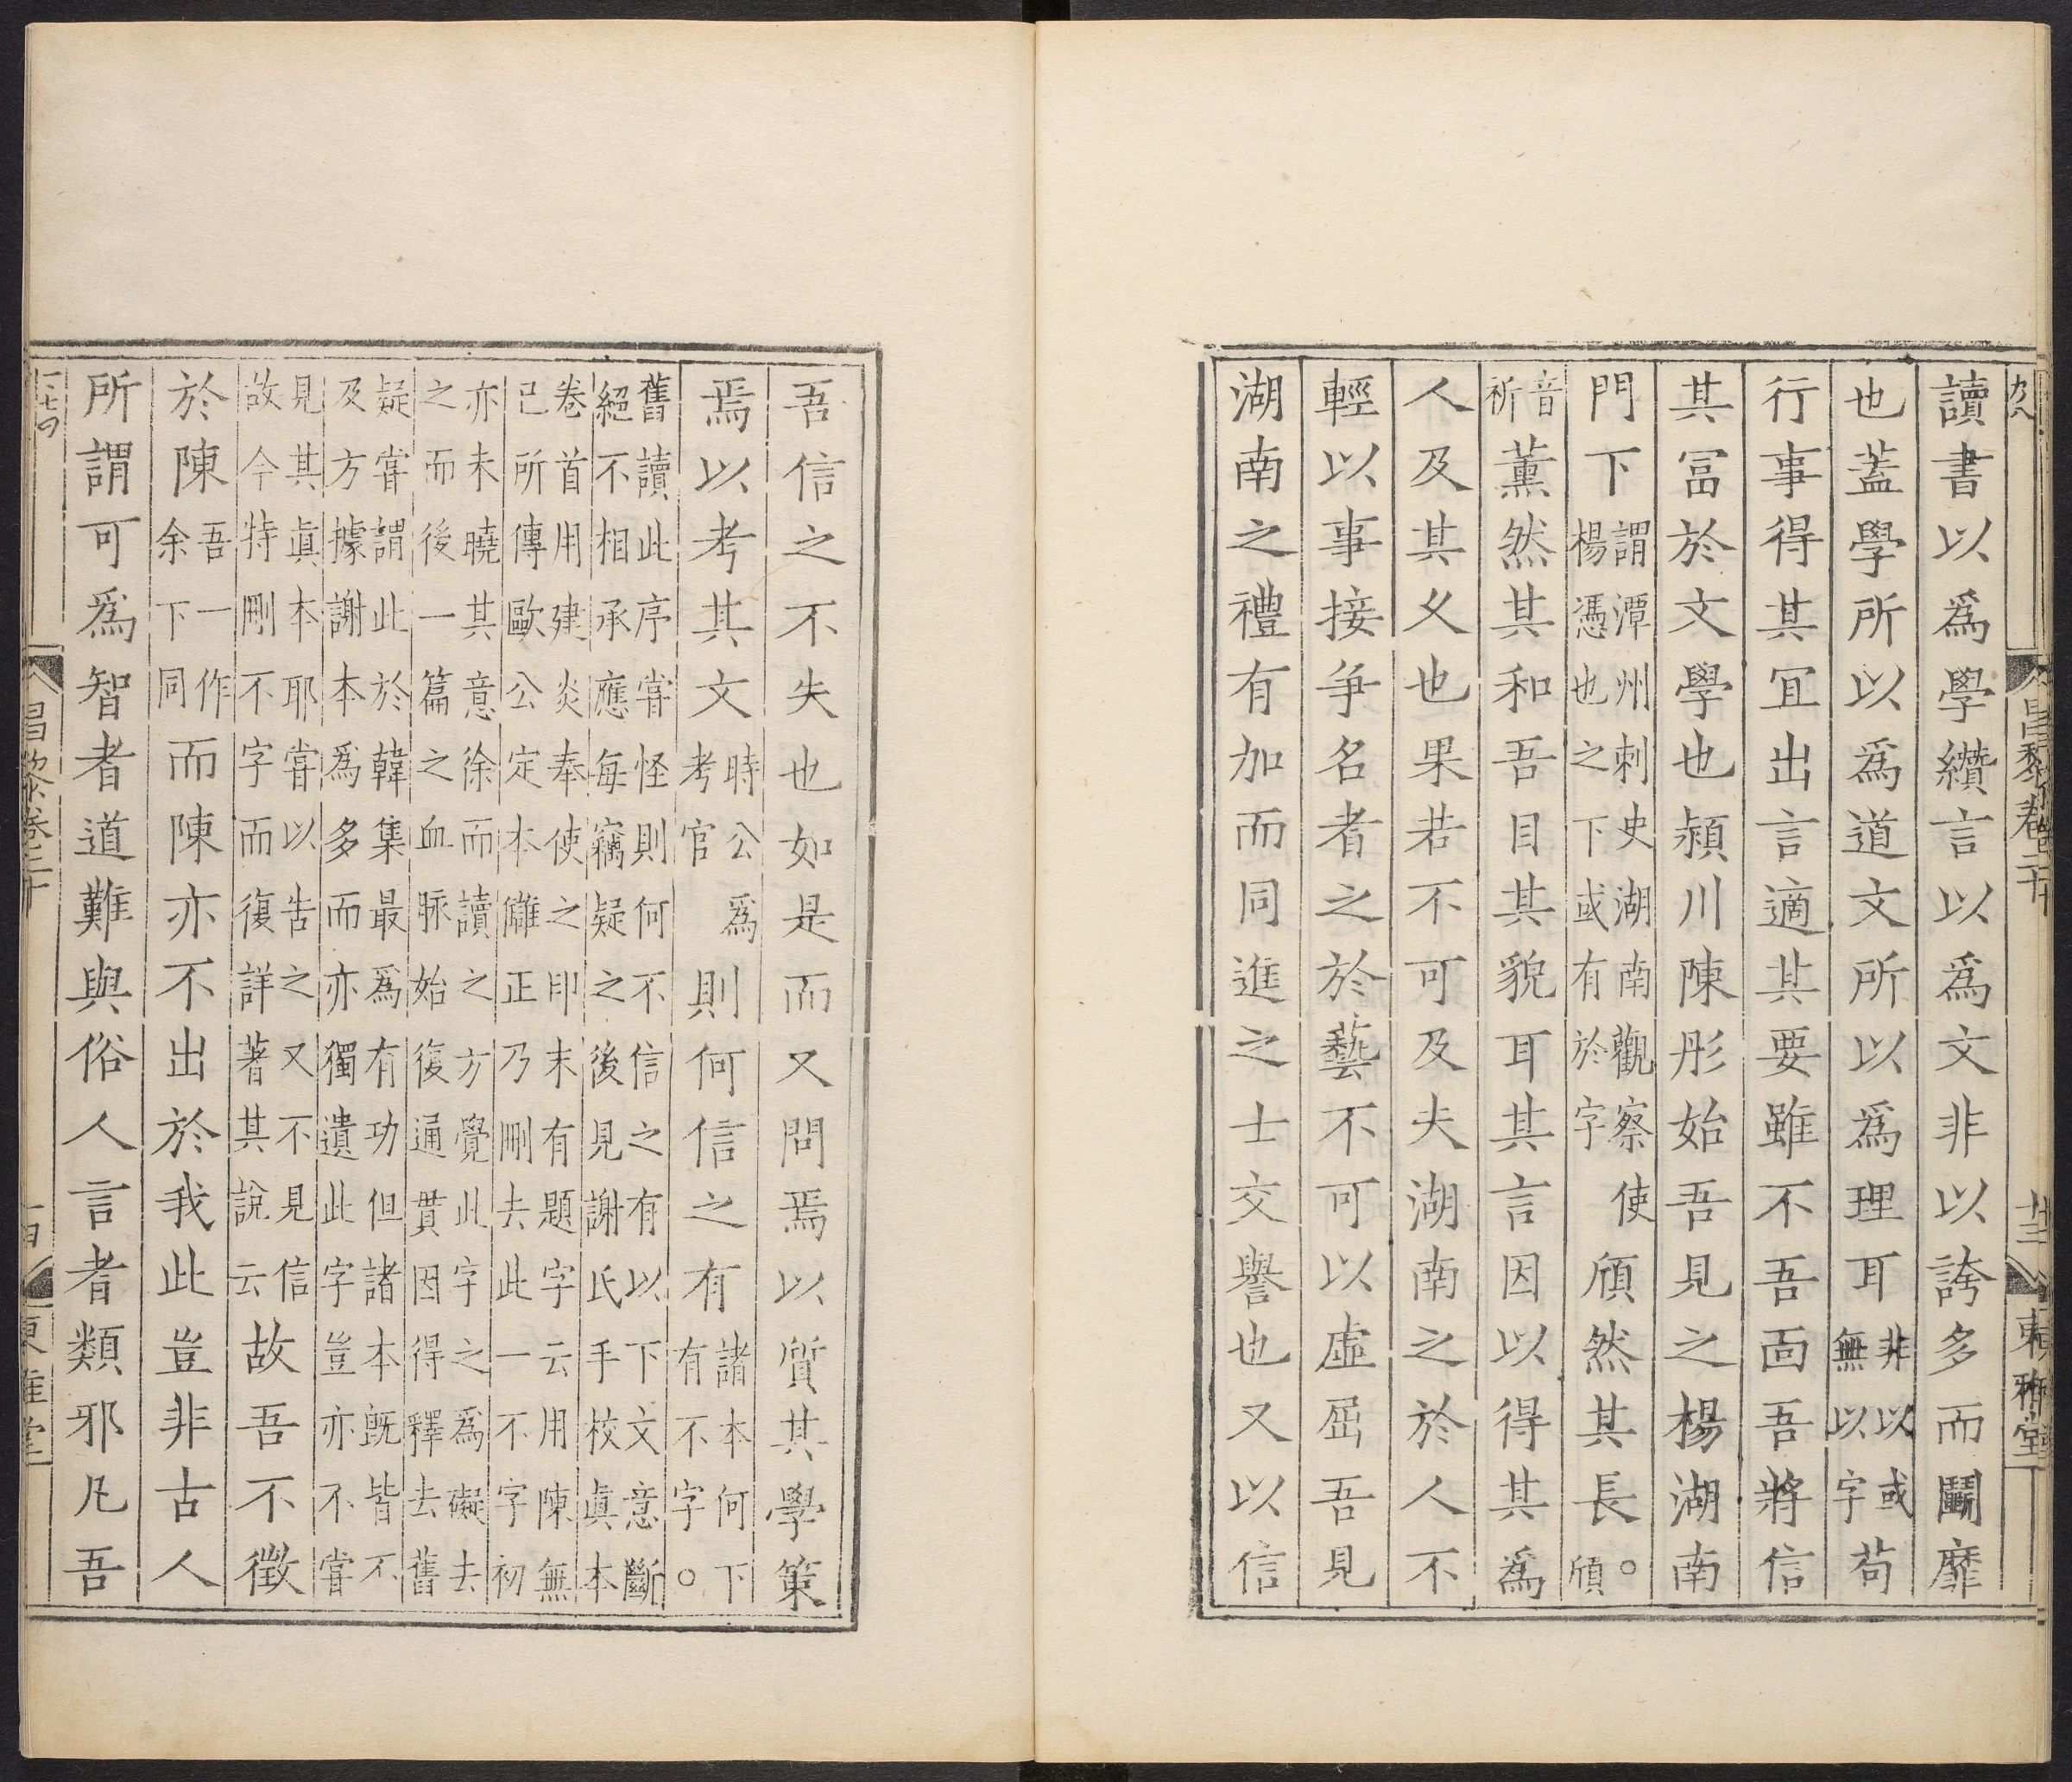 讀書以爲學纘言以爲文非以誇多而鬭靡
也蓋學所以爲道文所以爲理耳非以或無以字苟
行事得其宜出言適其要雖不吾面吾將信
其冨於文學也潁川陳彤始吾見之楊湖南
門下謂潭州刺史湖南觀察使楊憑也之下或有於字頎然其長○頎
音祈薰然其和吾目其貌耳其言因以得其爲
人及其乆也果若不可及夫湖南之於人不
輕以事接爭名者之於藝不可以虛屈吾見
湖南之禮有加而同進之士交譽也又以信
昌黎卷二十
廿三
東雅堂
吾信之不失也如是而又問焉以質其學策
焉以考其文時公爲考官則何信之有諸本何下有不字○
舊讀此序嘗怪則何不信之有以下文意斷
絕不相承應每竊疑之後見謝氏手校眞本
卷首用建炎奉使之印末有題字云用陳無
己所傳歐公定本讎正乃刪去此一不字初
亦未曉其意徐而讀之方覺此字之爲礙去
之而後一篇之血脉始復通貫因得釋去舊
疑嘗謂此於韓集最爲有功但諸本旣皆不
及方據謝本爲多而亦獨遺此字豈亦不嘗
見其眞本耶嘗以告之又不見信
故今特刪不字而復詳著其說云故吾不徵
於陳吾一作余下同而陳亦不出於我此豈非古人
所謂可爲智者道難與俗人言者類邪凡吾
昌黎卷二十
東雅堂